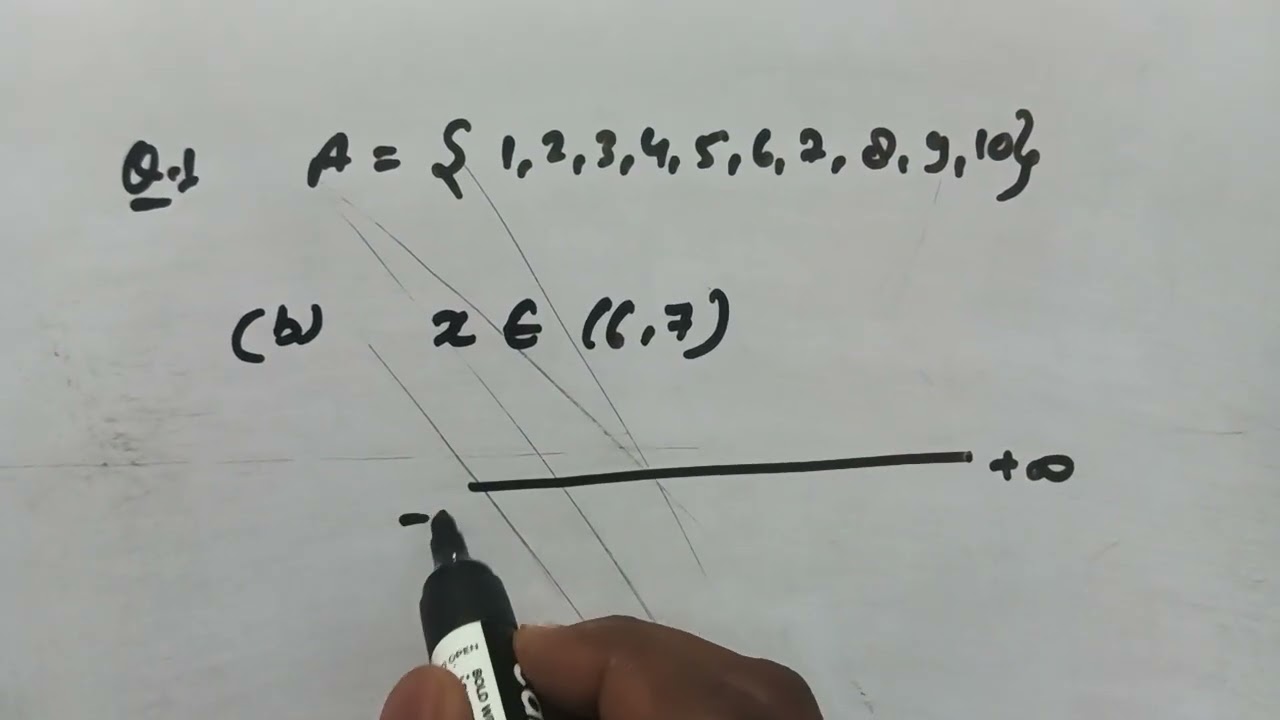 Q.1 A = { 1, 2, 3, 4, 5, 6, 7, 8, 9, 10}
(b) x ∈ (6,7)
+∞
-
OPEN
BOLD